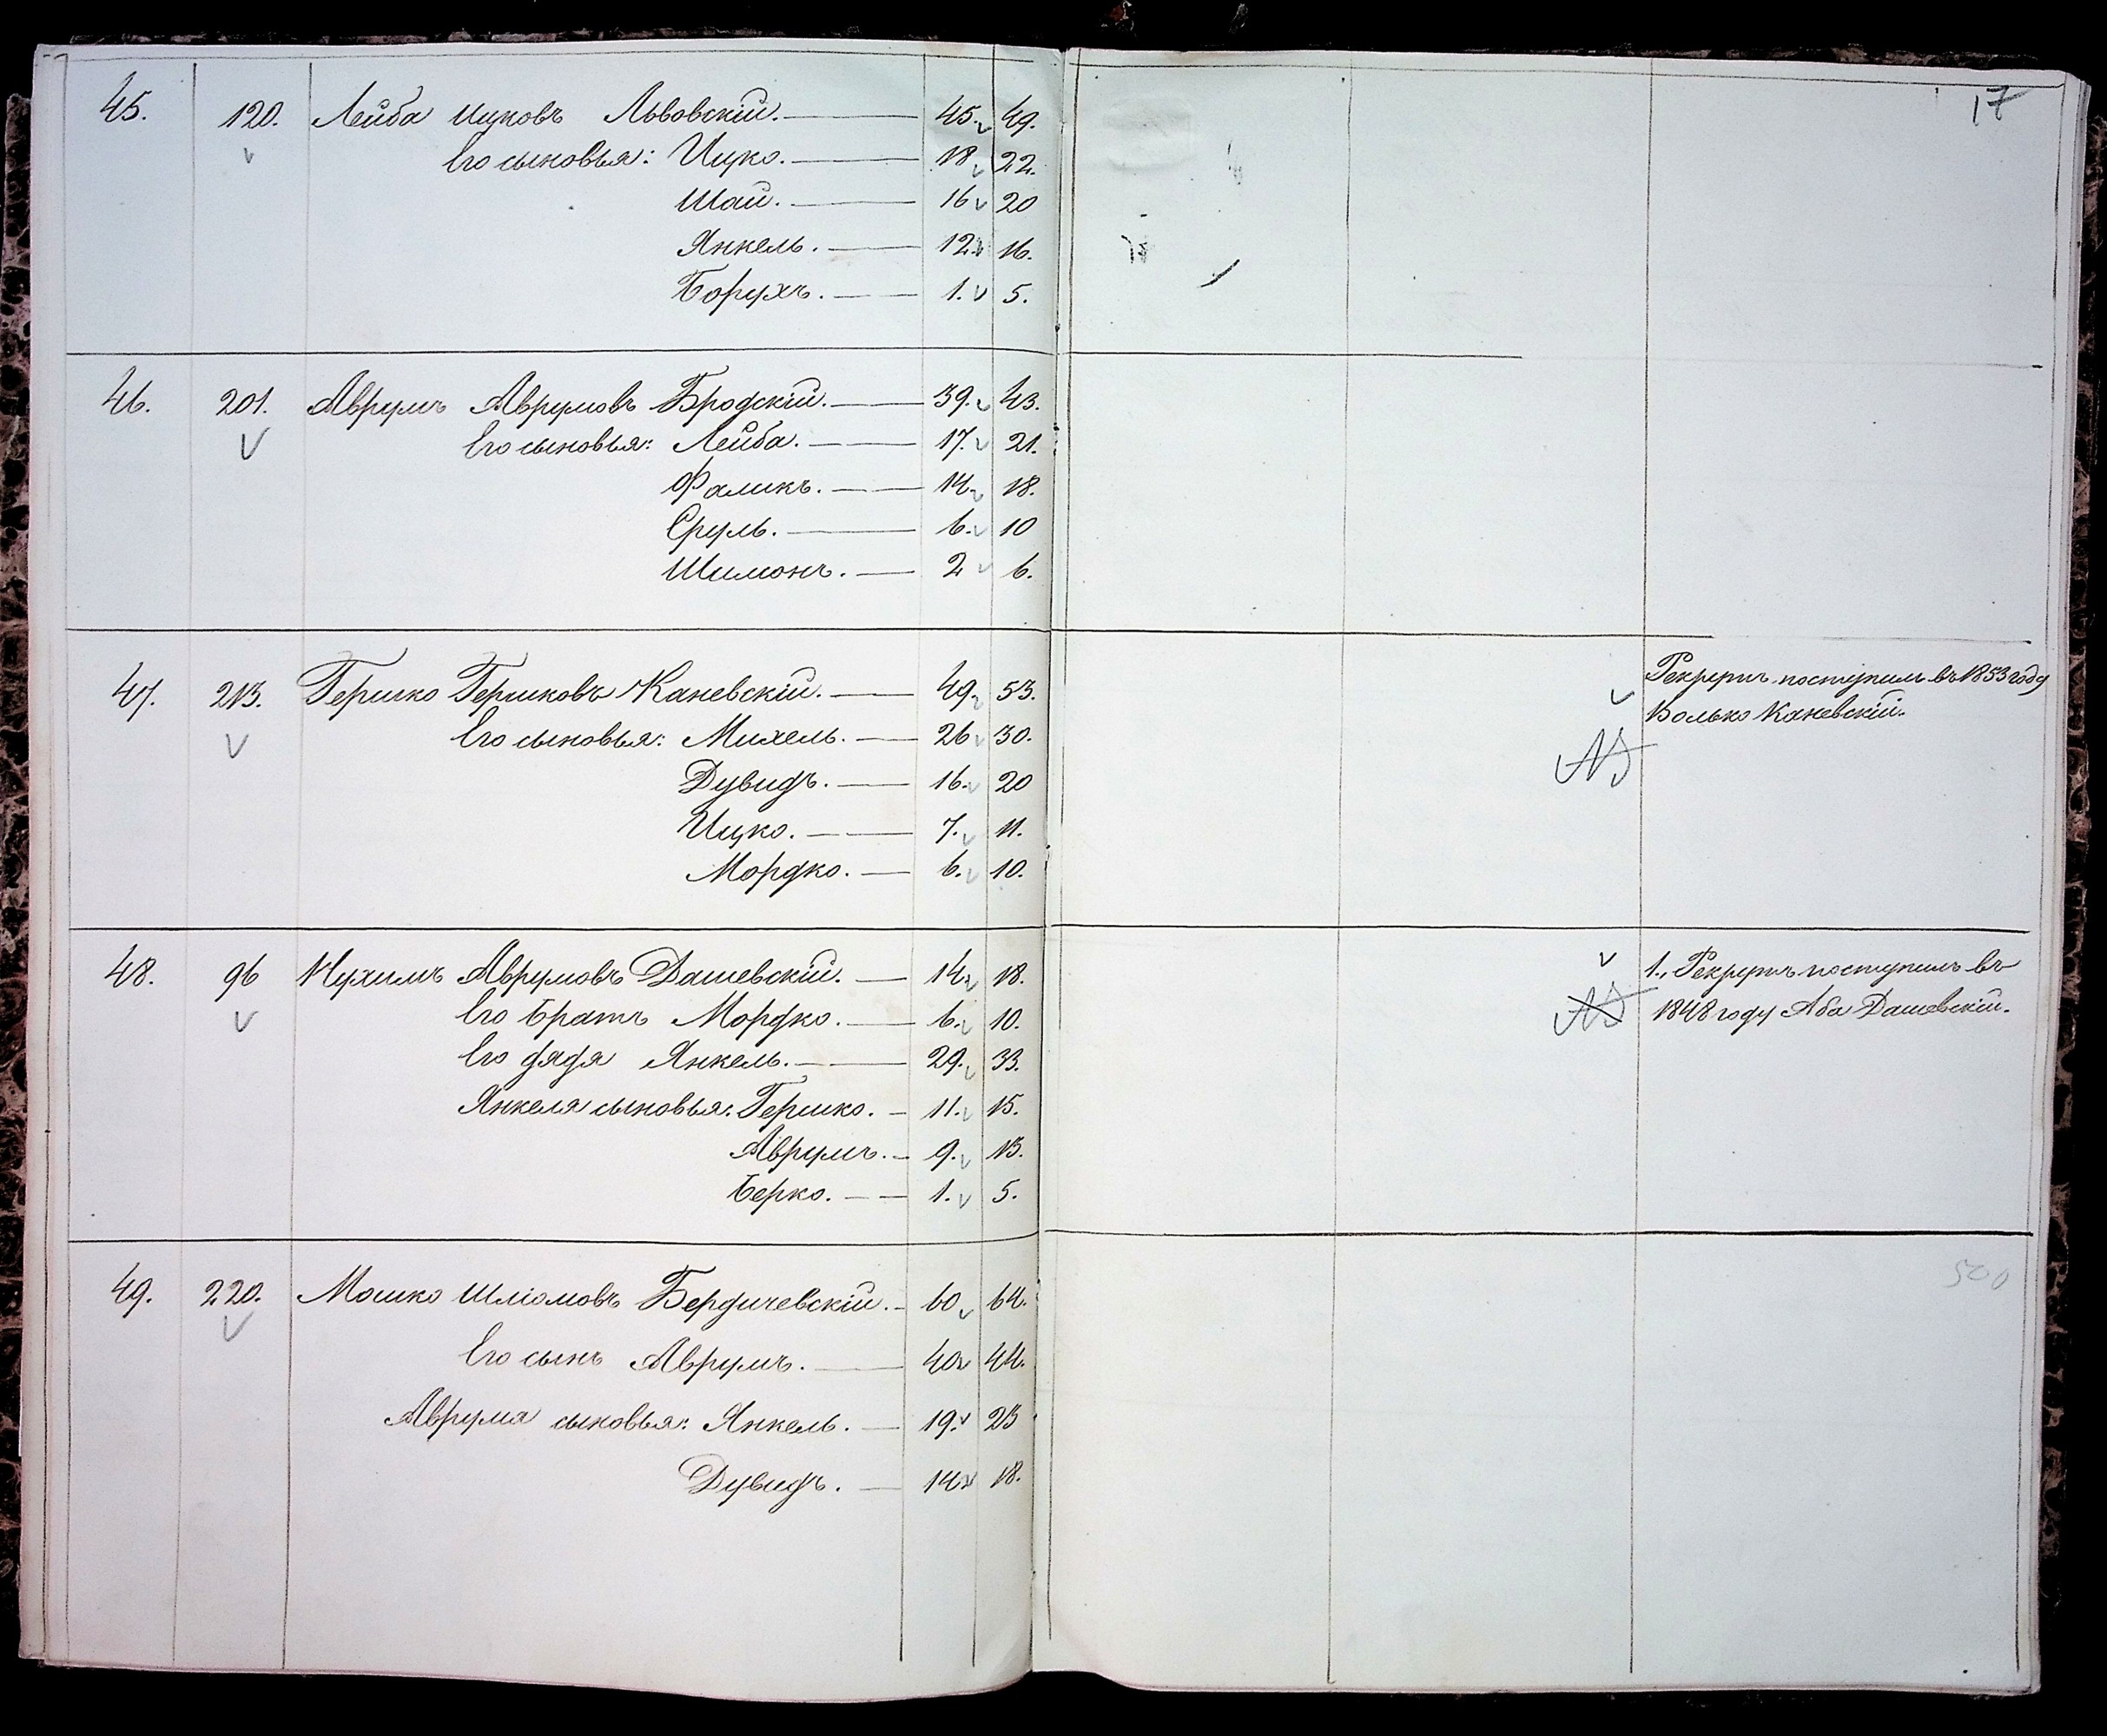 17
45. 120. Лейба Ицковъ Львовскій. 45. 49.
Его сыновья: Ицко. 18. 22.
Шай. 16 20
Янкель. 12. 16.
Борухъ. 1. 5.
46. 201. Аврумъ Аврумовъ Бродскій. 39. 43.
Его сыновья: Лейба. 17. 21.
Фаликъ. 14. 18.
Сруль. 6. 10
Шимонъ. 2 6.
47. 213. Гершко Гершковъ Каневскій. 49. 53. Рекрутъ поступилъ въ 1853 году
Волько Каневскій.
Его сыновья: Михель. 26 30.
Дувидъ. 16. 20
Ицко. 7. 11.
Мордко. 6. 10.
48. 96 Нухимъ Аврумовъ Дашевскій. 14. 18. 1., Рекрутъ поступилъ въ
1848 году Аба Дашевскій.
Его братъ Мордко. 6. 10.
Его дядя Янкель. 29. 33.
Янкеля сыновья: Гершко. 11. 15.
Аврумъ. 9. 13.
Берко. 1. 5.
49. 220. Мошко Шліомовъ Бердичевскій. 60 64.
Его сынъ Аврумъ. 40 44.
Аврума сыновья: Янкель. 19. 23
Дувидъ. 14 18.